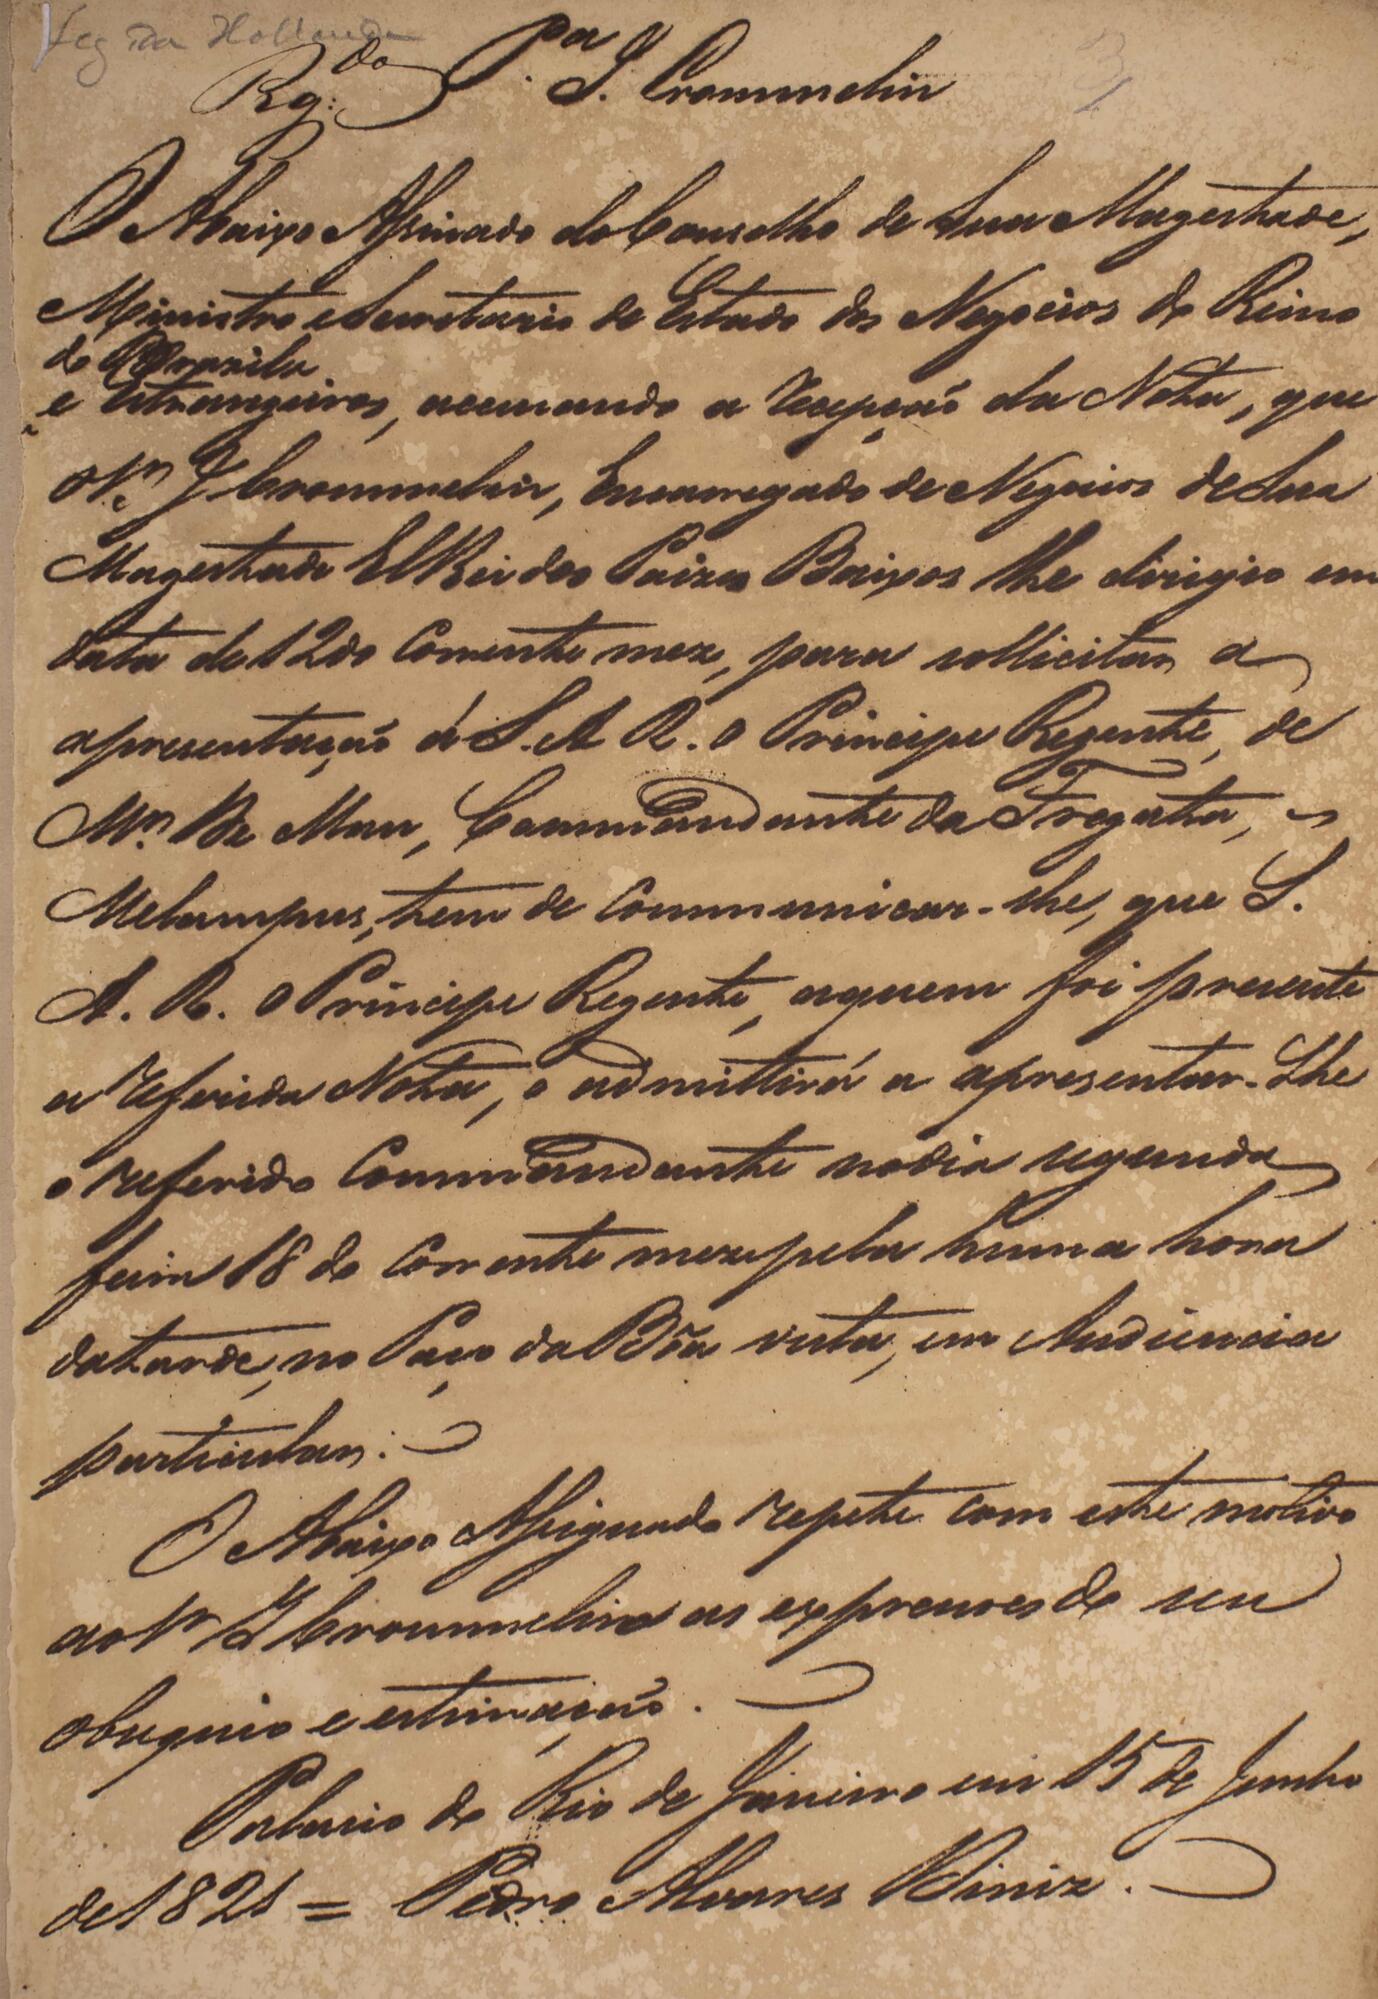 Leg da Hollanda
Rg.da P.a J. Crommelin
3
O Abaixo Assinado do Conselho de Sua Magestade,
Ministro e Secretario de Estado dos Negocios do Reino
do Brazil
e Estrangeiros, accuzando a recepção da Nota, que
o Sr. J Crommelin, Encarregado de Negocios de Sua
Magestade ElRei dos Paizes Baixos lhe dirigio em
data de 12 do Corrente mez, para sollicitar a
apresentação á S. A. R. o Principe Regente, de
Mr. De Man, Commandante da Fregata,
Melampus, tem de Communicar-lhe, que S.
A. R. o Principe Regente, aquem foi presente
a referida Nota, o admittirá a apresentar-Lhe
o referido Commandante no dia segunda
feira 18 do Corrente mez pela huma hora
da tarde, no Paço da Bôa vista, em Audiencia
particular.
O Abaixo Assignado repete com este motivo
ao Sr J Crommelin as expressoes de seu
obsequio e estimação.
Palacio do Rio de Janeiro em 15 de Junho
de 1821 = Pedro Alvares Diniz.